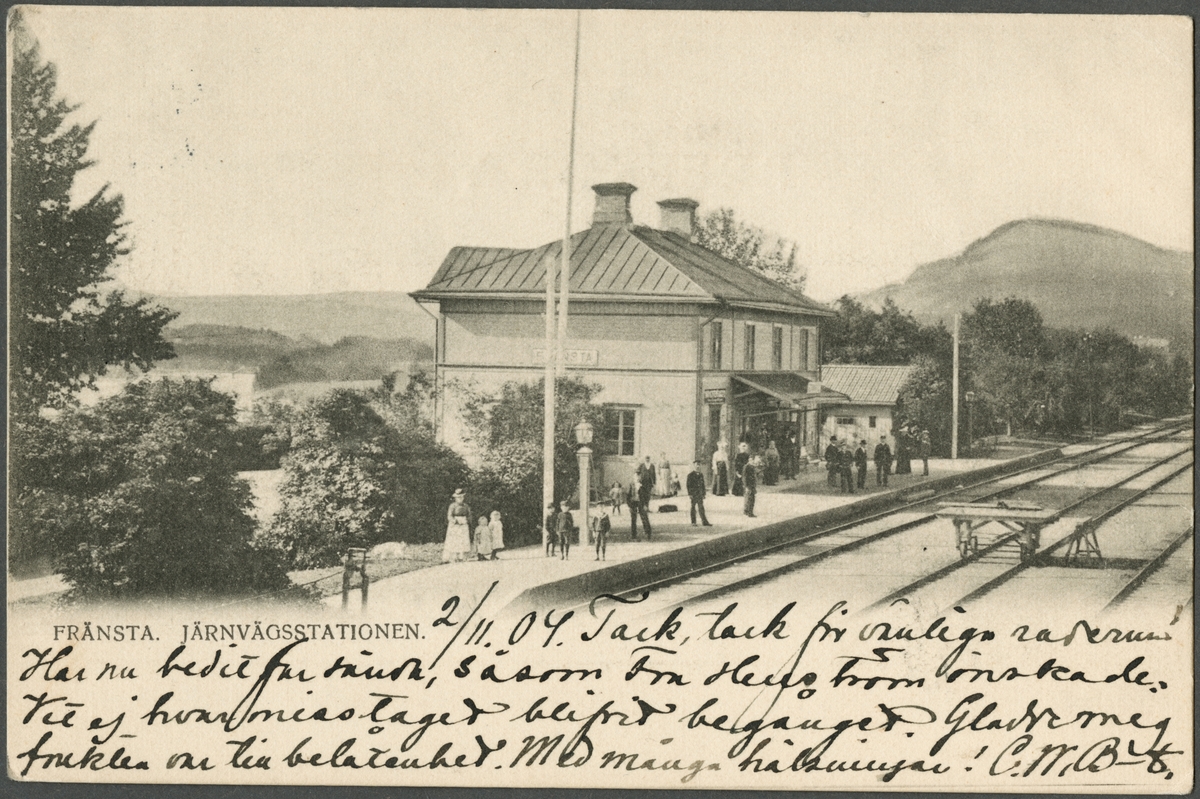 FRÄNSTA
FRÄNSTA. JÄRNVÄGSSTATIONEN.
2/11.04. Tack, tack för vänliga raderna!
Har nu bedit far sända, såsom Fru Hengström önskade.
Vet ej hvar misstaget blifvit begånget. Gladde mig
frukten var till belåtenhet. Med många hälsningar! C.W.B-t.